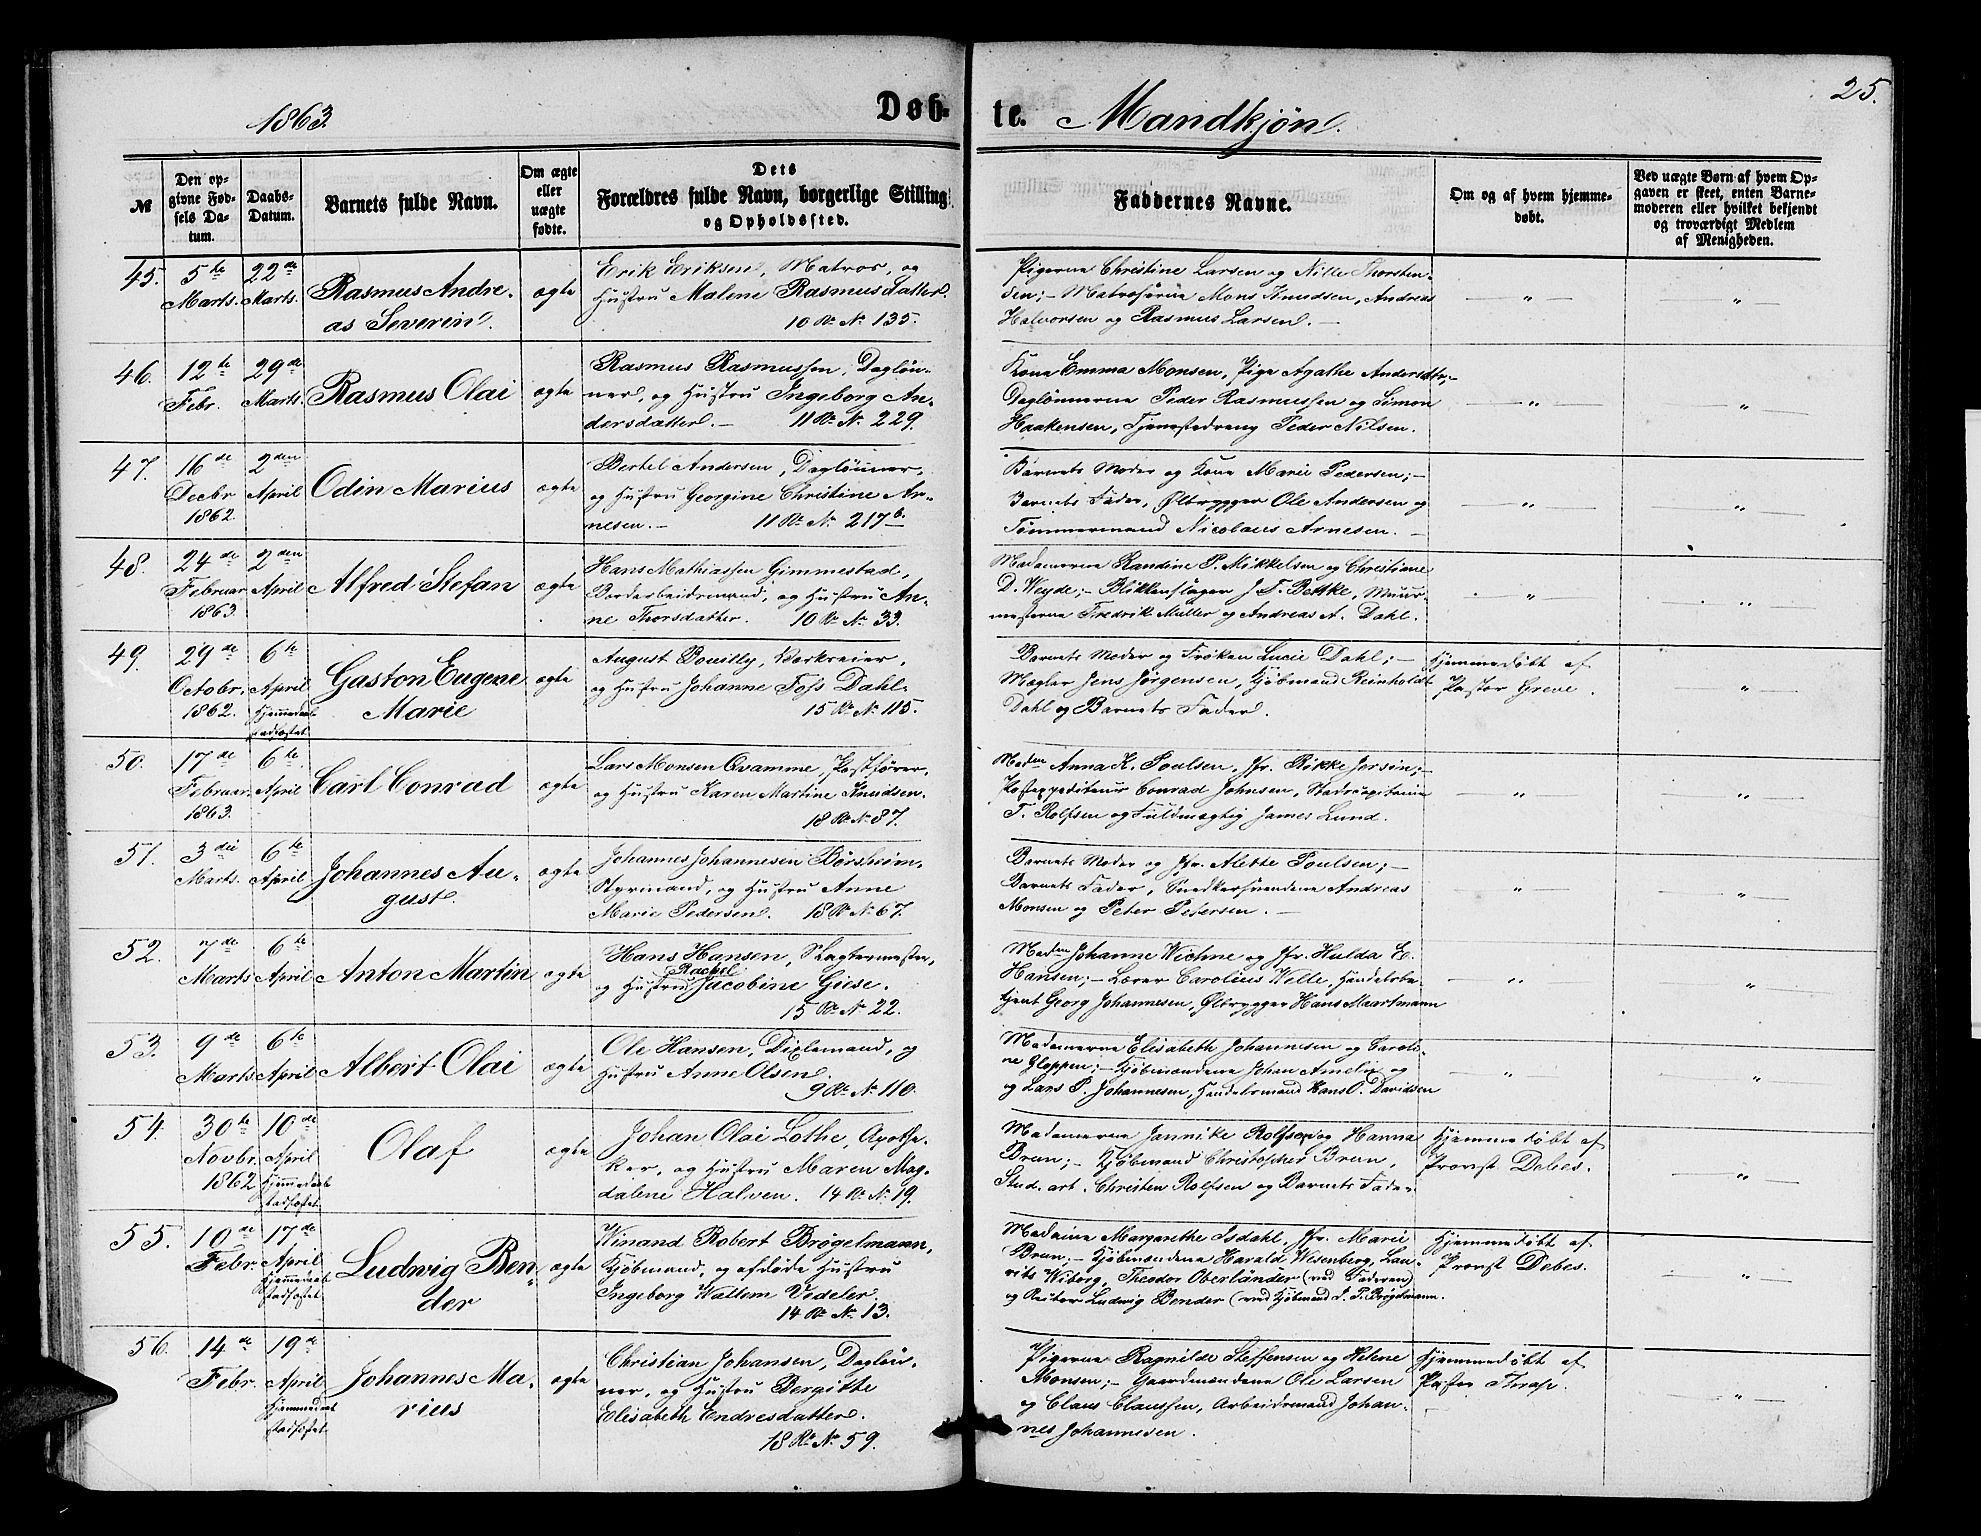 1863.
Døb-
te. Mandkjøn.
25.
№
Den op-
givne Fød-
sels Da-
tum.
Daabs-
Datum.
Barnets fulde Navn.
Om ægte
eller
uægte
fødte.
Dets
Forældres fulde Navn, borgerlige Stilling
og Opholdssted.
Faddernes Navne.
Om og af hvem hjemme-
døbt.
Ved uægte Børn af hvem Op-
gaven er skeet, enten Barne-
moderen eller hvilket bekjendt
og troværdigt Medlem
af Menigheden.
45.
5te
Marts.
22de
Marts.
Rasmus Andre-
as Severin.
ægte
Erik Eriksen, Matros, og
Hustru Malene Rasmusdatter.
10 Rd. N. 135.
Pigerne Christine Larsen og Nille Thorsten-
sen; - Matroserne Mons Knudsen, Andreas
Halvorsen og Rasmus Larsen. -
— " —
— " —
46.
12te
Febr.
29de
Marts.
Rasmus Olai
ægte
Rasmus Rasmussen, Dagløn-
ner, og Hustru Ingeborg An-
dersdatter. - 11 Rd. N. 229.
Kone Emma Monsen, Pige Agathe Andersdtr; -
Daglønnerne Peder Rasmussen og Simon
Haakensen, Tjenestedreng Peder Nilsen.
— " —
— " —
47.
16de
Decbr
1862
2den
April
Odin Marius
ægte
Bertel Andersen, Daglønner,
og Hustru Georgine Christine Ar-
nesen. - 11 Rd. N. 217b.
Barnets Moder og Kone Marie Pedersen; -
Barnets Fader, Ølbrygger Ole Andersen og
Tømmermand Nicolaus Arnesen. -
— " —
— " —
48.
24de
Februar
1863
2den
April
Alfred Stefan
ægte
Hans Mathiassen Gimmestad,
Bordarbeidsmand, og Hustru An-
ne Thorsdatter. 10 Rd. N. 33.
Madamerne Randine P. Mikkelsen og Christiane
D. Weyde; - Blikkenslager J. F. Bettke, Muur-
mesterne Fredrik Müller og Andreas A. Dahl.
— " —
— " —
49.
29de
Octobr.
1862.
6te
April
Hjemmedaab
stadfæstet.
Gaston Eugene
Marie
ægte
August Bouilly, Værkeier,
og Hustru Johanne Foss Dahl.
15 Rd. N. 115.
Barnets Moder og Frøken Lucie Dahl; -
Mægler Jens Jørgensen, Kjøbmand Reinholdt
Dahl og Barnets Fader.
Hjemmedøbt af
Pastor Greve.
— " —
50.
17de
Februar.
1863.
6te
April
Carl Conrad
ægte
Lars Monsen Qvamme, Postfører,
og Hustru Karen Martine Knudsen.
18 Rd. N. 87.
Maden Anna K. Poulsen, Jfr. Rikke Jersin; -
Postexpediteur Conrad Johnsen, Stadscapitaine
T. Rolfsen og Fuldmægtig James Lund.
— " —
— " —
51.
3die
Marts.
6te
April
Johannes Au-
gust.
ægte
Johannes Johannesen Børsheim,
Styrmand, og Hustru Anne
Marie Pedersen. 18 Rd. N. 67.
Barnets Moder og Jfr. Alette Poulsen; -
Barnets Fader, Snedkersvendene Andreas
Monsen og Peter Petersen. -
— " —
— " —
52.
7de
Marts
6te
April
Anton Martin
ægte
Hans Hansen, Slagtermester,
og Hustru Rachel Jacobine Giese.
15 Rd. N. 22.
Maden Johanne Wichne og Jfr. Hulda E.
Hansen; - Lærer Carolius Welle, Handelsbe-
tjent Georg Johannesen, Ølbrygger Hans Maartmann
— " —
— " —
53.
9de
Marts
6te
April
Albert Olai
ægte
Ole Hansen, Dixlemand, og
Hustru Anne Olsen.
9 Rd. N. 110.
Madamerne Elisabeth Johannesen og Caroli-
ne Gloppen; - Kjøbmændene Johan Ameln og
og Lars P. Johannesen, Handelsmand Hans O. Davidsen
— " —
— " —
54.
30te
Novbr.
1862
10de
April
Hjemmedaab
stadfæstet.
Olaf
ægte
Johan Olai Lothe, Apothe-
ker, og Hustru Maren Mag-
dalene Halven. 14 Rd. N. 19.
Madamerne Jannike Rolfsen og Hanna
Brun; - Kjøbmand Christopher Brun,
Stud. art. Christen Rolfsen og Barnets Fader
Hjemmedøbt af
Provst Debes.
— " —
55.
10de
Febr.
17de
April
Hjemmedaab
stadfæstet
Ludwig Ben-
der
ægte
Winand Robert Brøgelmann,
Kjøbmand, og afdøde Hustru
Ingeborg Wallem Vedeler.
14 Rd. N. 13.
Madame Margarethe Isdahl, Jfr. Marie
Brun. - Kjøbmændene Harald Wesenberg, Lau-
rits Wiborg, Theodor Oberländer (ved Faderen)
og Reiter Ludwig Bender (ved Kjøbmand J. P. Brøgelmann.
Hjemmedøbt af
Provst Debes.
— " —
56.
14de
Febr.
19de
April
Hjemmedaab
stadfæstet.
Johannes Ma-
rius
ægte
Christian Johansen, Dagløn-
ner, og Hustru Bergitte
Elisabeth Endresdatter.
18 Rd. N. 59.
Pigerne Ragnilde Steffensen og Helene
Monsen; - Gaardmændene Ole Larsen
og Claus Claussen, Arbeidsmand Johan-
nes Johannesen.
Hjemmedøbt af
Pastor Thrap.
— " —